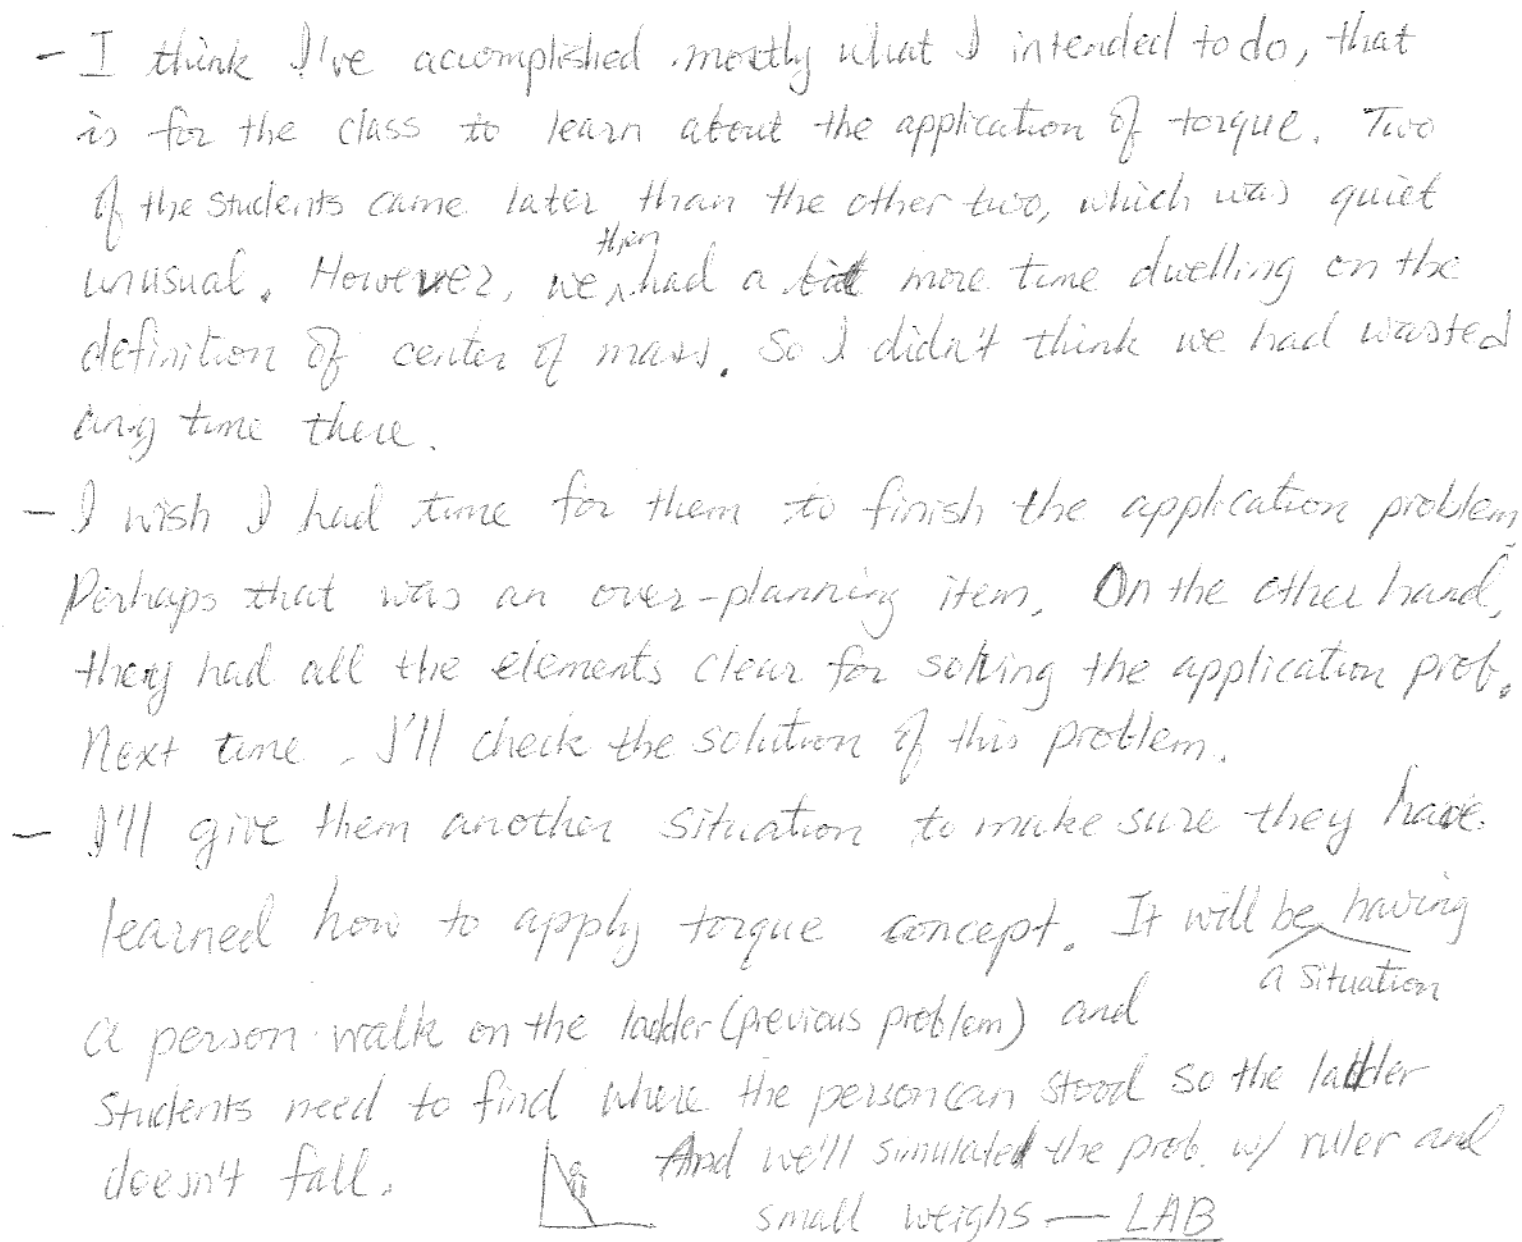 - I think I've accomplished mostly what I intended to do, that
is for the class to learn about the application of torque. Two
of the students came later than the other two, which was quiet
unusual. However, we then had a bit more time dwelling on the
definition of center of mass. So I didn't think we had wasted
any time there.
- I wish I had time for them to finish the application problem.
Perhaps that was an over-planning item. On the other hand,
they had all the elements clear for solving the application prob.
Next time, I'll check the solution of this problem.
- I'll give them another situation to make sure they have
learned how to apply torque concept. It will be having
a situation
a person walk on the ladder (previous problem) and
students need to find where the person can stood so the ladder
doesn't fall. And we'll simulated the prob. w/ ruler and
small weighs — LAB